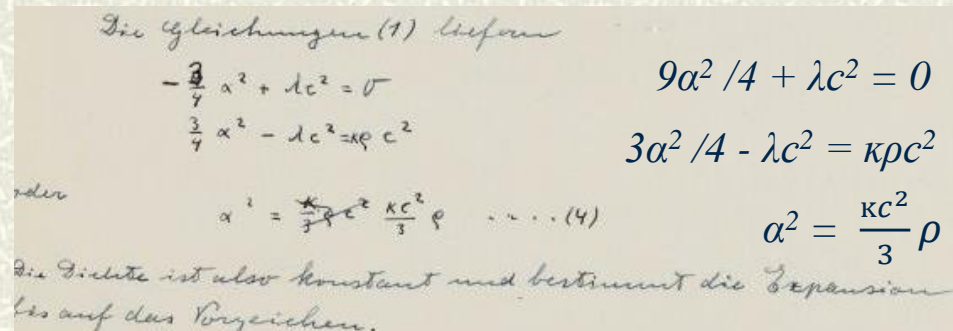 Die Gleichungen (1) liefern
- 3/4 α² + λc² = 0
3/4 α² - λc² = κρ c²
oder
α² = κc²/3 ρ ..... (4)
Die Dichte ist also konstant und bestimmt die Expansion
bis auf das Vorzeichen.
9α² /4 + λc² = 0
3α² /4 - λc² = κρc²
α² = κc²/3 ρ